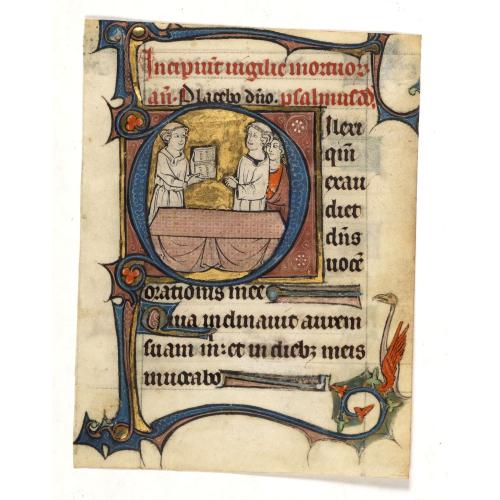 Incipiunt uigilie mortuor
añ. Placebo dño. psalmus dd.
Dilexi
qm̄
exau
diet
dn̄s
uocē
orationis mee
Quia inclinauit aurem
suam m̄: et in diebꝫ meis
inuocabo